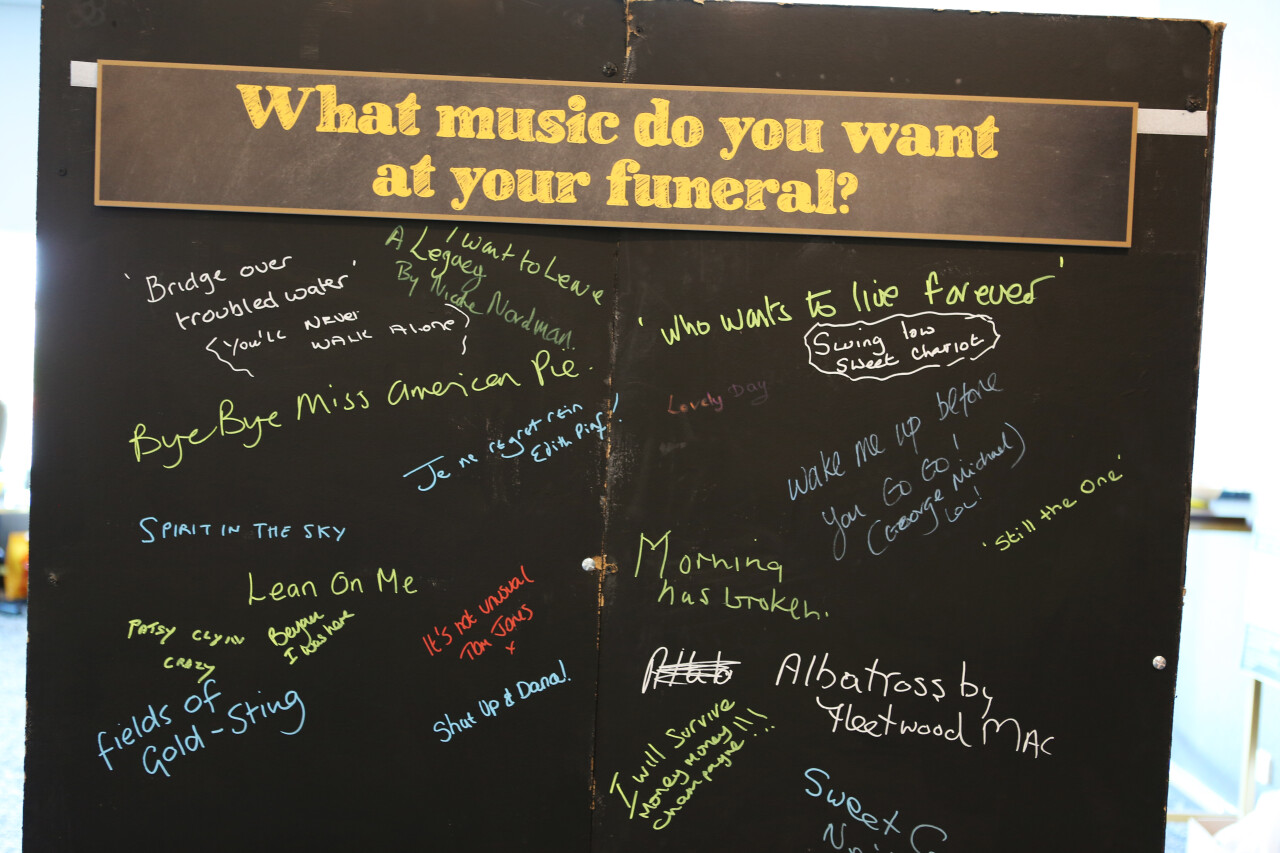 What music do you want
at your funeral?
'Bridge over
troubled water'
(You'll NEVER
WALK ALONE)
I want to Leave
A Legacy
By Nicole Nordman.
'who wants to live forever'
Swing low
Sweet Chariot
Bye Bye Miss American Pie.
Je ne regret rein
Edith Piaf!
Lovely Day
wake me up before
you Go Go!
(George Michael)
LOL!
'Still the One'
SPIRIT IN THE SKY
Morning
has broken.
Lean On Me
PATSY CLYNN
CRAZY
I was here
It's not unusual
Tom Jones
x
fields of
Gold - Sting
Shut Up & Dance!
Albatross by
Fleetwood MAC
I will Survive
Money Money!!!
Champagne!!!
Sweet C